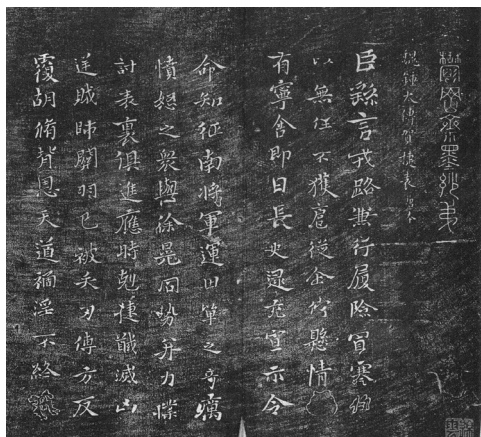 鬱岡齋墨妙第一
魏鍾太傅賀捷表
臣繇言戎路兼行履險冒寒臣
以無任不獲扈從企佇懸情
有寧舍即日長史逯充宣示令
命知征南將軍運田單之奇厲
憤怒之衆與徐晃同勢并力撲
討表裏俱進應時剋捷馘滅凶
逆賊帥關羽已被矢刃傅方反
覆胡脩背恩天道禍淫不終